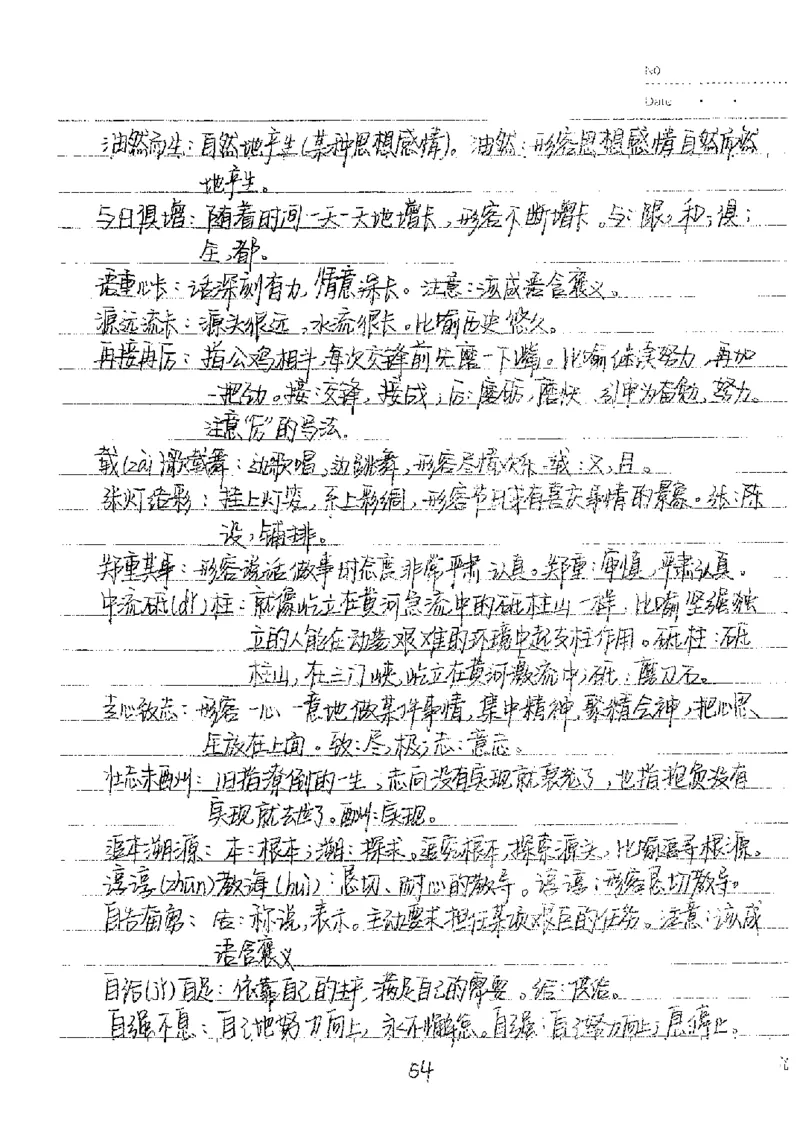 NO
Date
油然而生：自然地产生(某种思想感情)。油然：形容思想感情自然而然
地产生。
与日俱增：随着时间一天一天地增长，形容不断增长。与：跟，和；俱：
全，都。
语重心长：话深刻有力，情意深长。注意：该成语含褒义。
源远流长：源头很远，水流很长。比喻历史悠久。
再接再厉：指公鸡相斗，每次交锋前先磨一下嘴。比喻继续努力，再加
一把劲。接：交锋，接战；厉：磨砺，磨快，引申为奋勉，努力。
注意“厉”的写法。
载(zài)歌载舞：边歌唱，边跳舞，形容尽情欢乐。载：又，且。
张灯结彩：挂上灯笼，系上彩绸，形容节日或有喜庆事情的景象。张：陈
设，铺排。
郑重其事：形容说话做事时态度非常严肃认真。郑重：审慎，严肃认真。
中流砥(dǐ)柱：就像屹立在黄河急流中的砥柱山一样，比喻坚强独
立的人能在动荡艰难的环境中起支柱作用。砥柱：砥
柱山，在三门峡，屹立在黄河激流中；砥：磨刀石。
专心致志：形容一心一意地做某件事情，集中精神，聚精会神，把心思
全放在上面。致：尽，极；志：意志。
壮志未酬：旧指潦倒的一生，志向没有实现就衰老了，也指抱负没有
实现就去世了。酬：实现。
追本溯源：本：根本；溯：探求。追究根本，探索源头，比喻追寻根源。
谆谆(zhūn)教诲(huì)：恳切、耐心的教导。谆谆：形容恳切教导。
自告奋勇：告：称说，表示。主动要求担任某项艰巨的任务。注意：该成
语含褒义
自给(jǐ)自足：依靠自己的生产，满足自己的需要。给：供给。
自强不息：自己地努力向上，永不懈怠。自强：自己努力向上；息：停止。
64